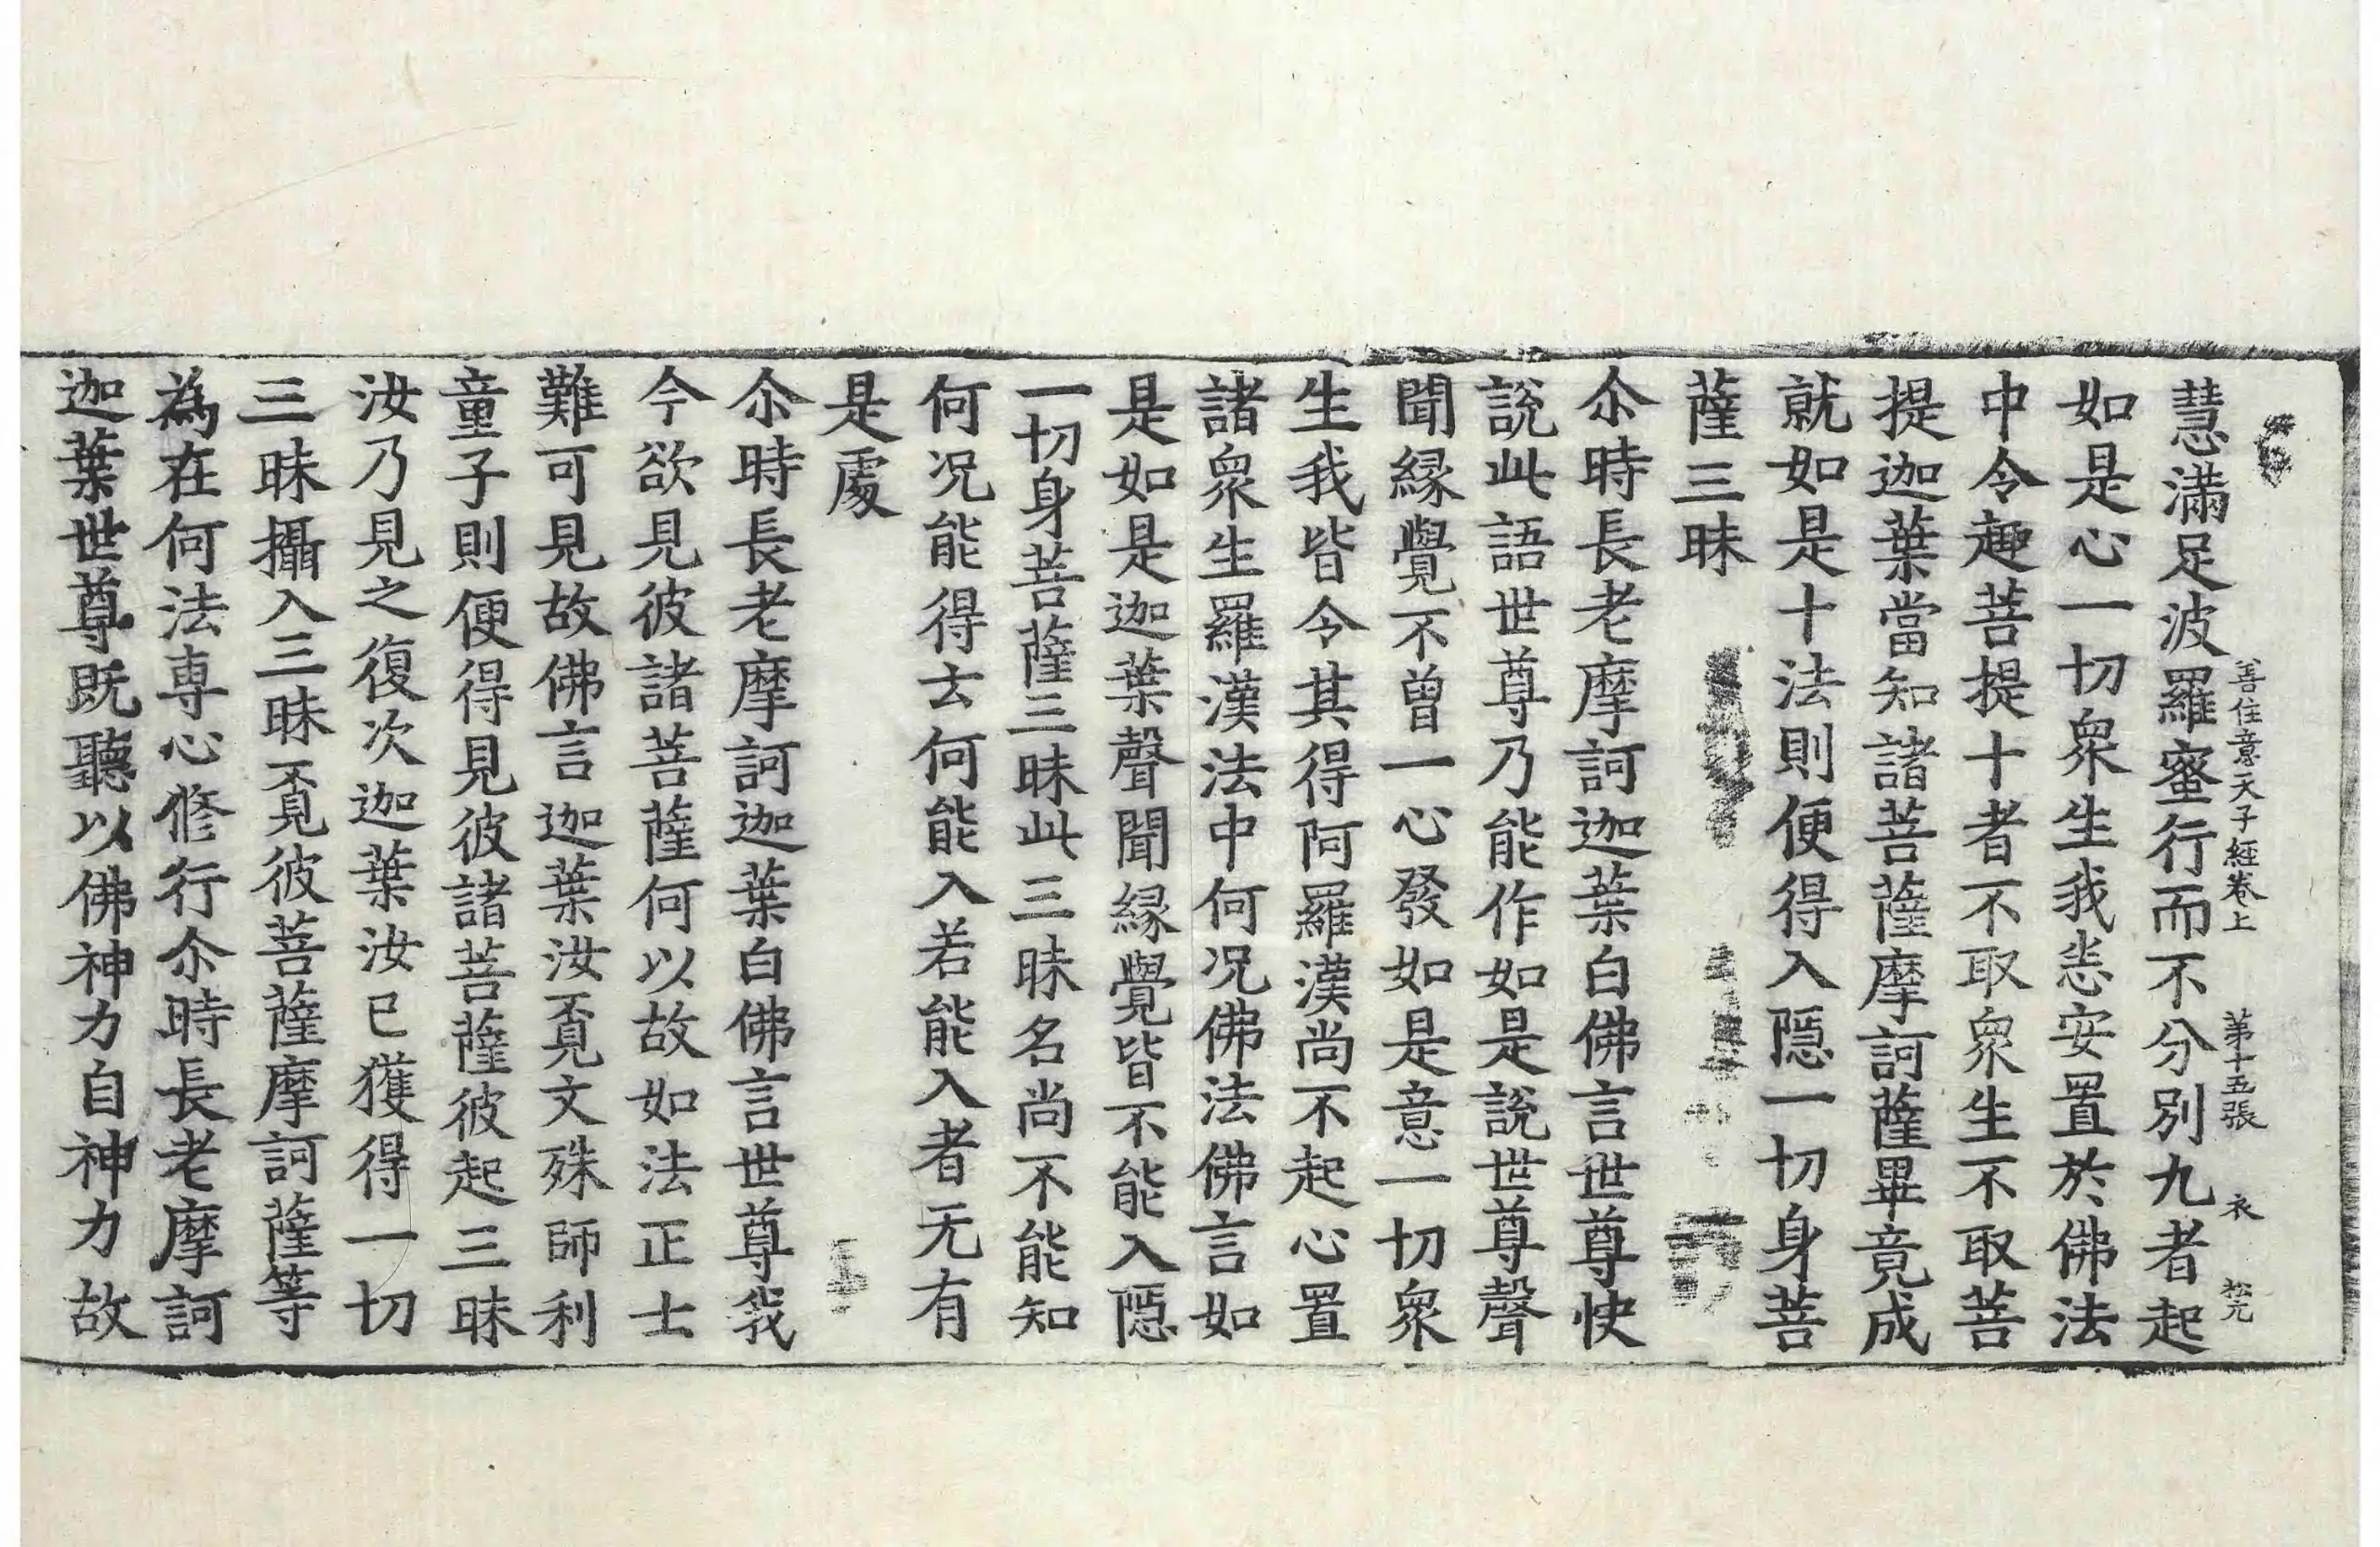 善住意天子經卷上 第十五張 衣 松元
慧滿足波羅蜜行而不分別九者起
如是心一切衆生我悉安置於佛法
中令趣菩提十者不取衆生不取菩
提迦葉當知諸菩薩摩訶薩畢竟成
就如是十法則便得入隱一切身菩
薩三昧
尒時長老摩訶迦葉白佛言世尊快
說此語世尊乃能作如是說世尊聲
聞縁覺不曾一心發如是意一切衆
生我皆令其得阿羅漢尚不起心置
諸衆生羅漢法中何况佛法佛言如
是如是迦葉聲聞縁覺皆不能入隱
一切身菩薩三昧此三昧名尚不能知
何况能得去何能入若能入者无有
是處
尒時長老摩訶迦葉白佛言世尊我
今欲見彼諸菩薩何以故如法正士
難可見故佛言迦葉汝覔文殊師利
童子則便得見彼諸菩薩彼起三昧
汝乃見之復次迦葉汝已獲得一切
三昧攝入三昧覔彼菩薩摩訶薩等
為在何法專心修行尒時長老摩訶
迦葉世尊既聽以佛神力自神力故